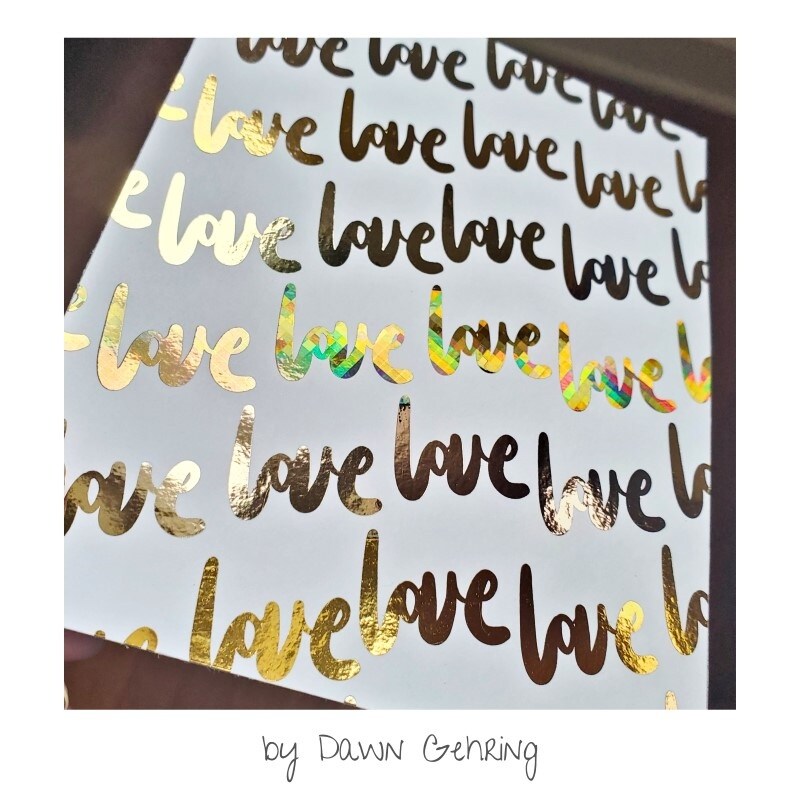 love love love love
e love love love love lo
e love love love love lo
e love love love love l
love love love love lo
e love love love lo
by Dawn Gehring